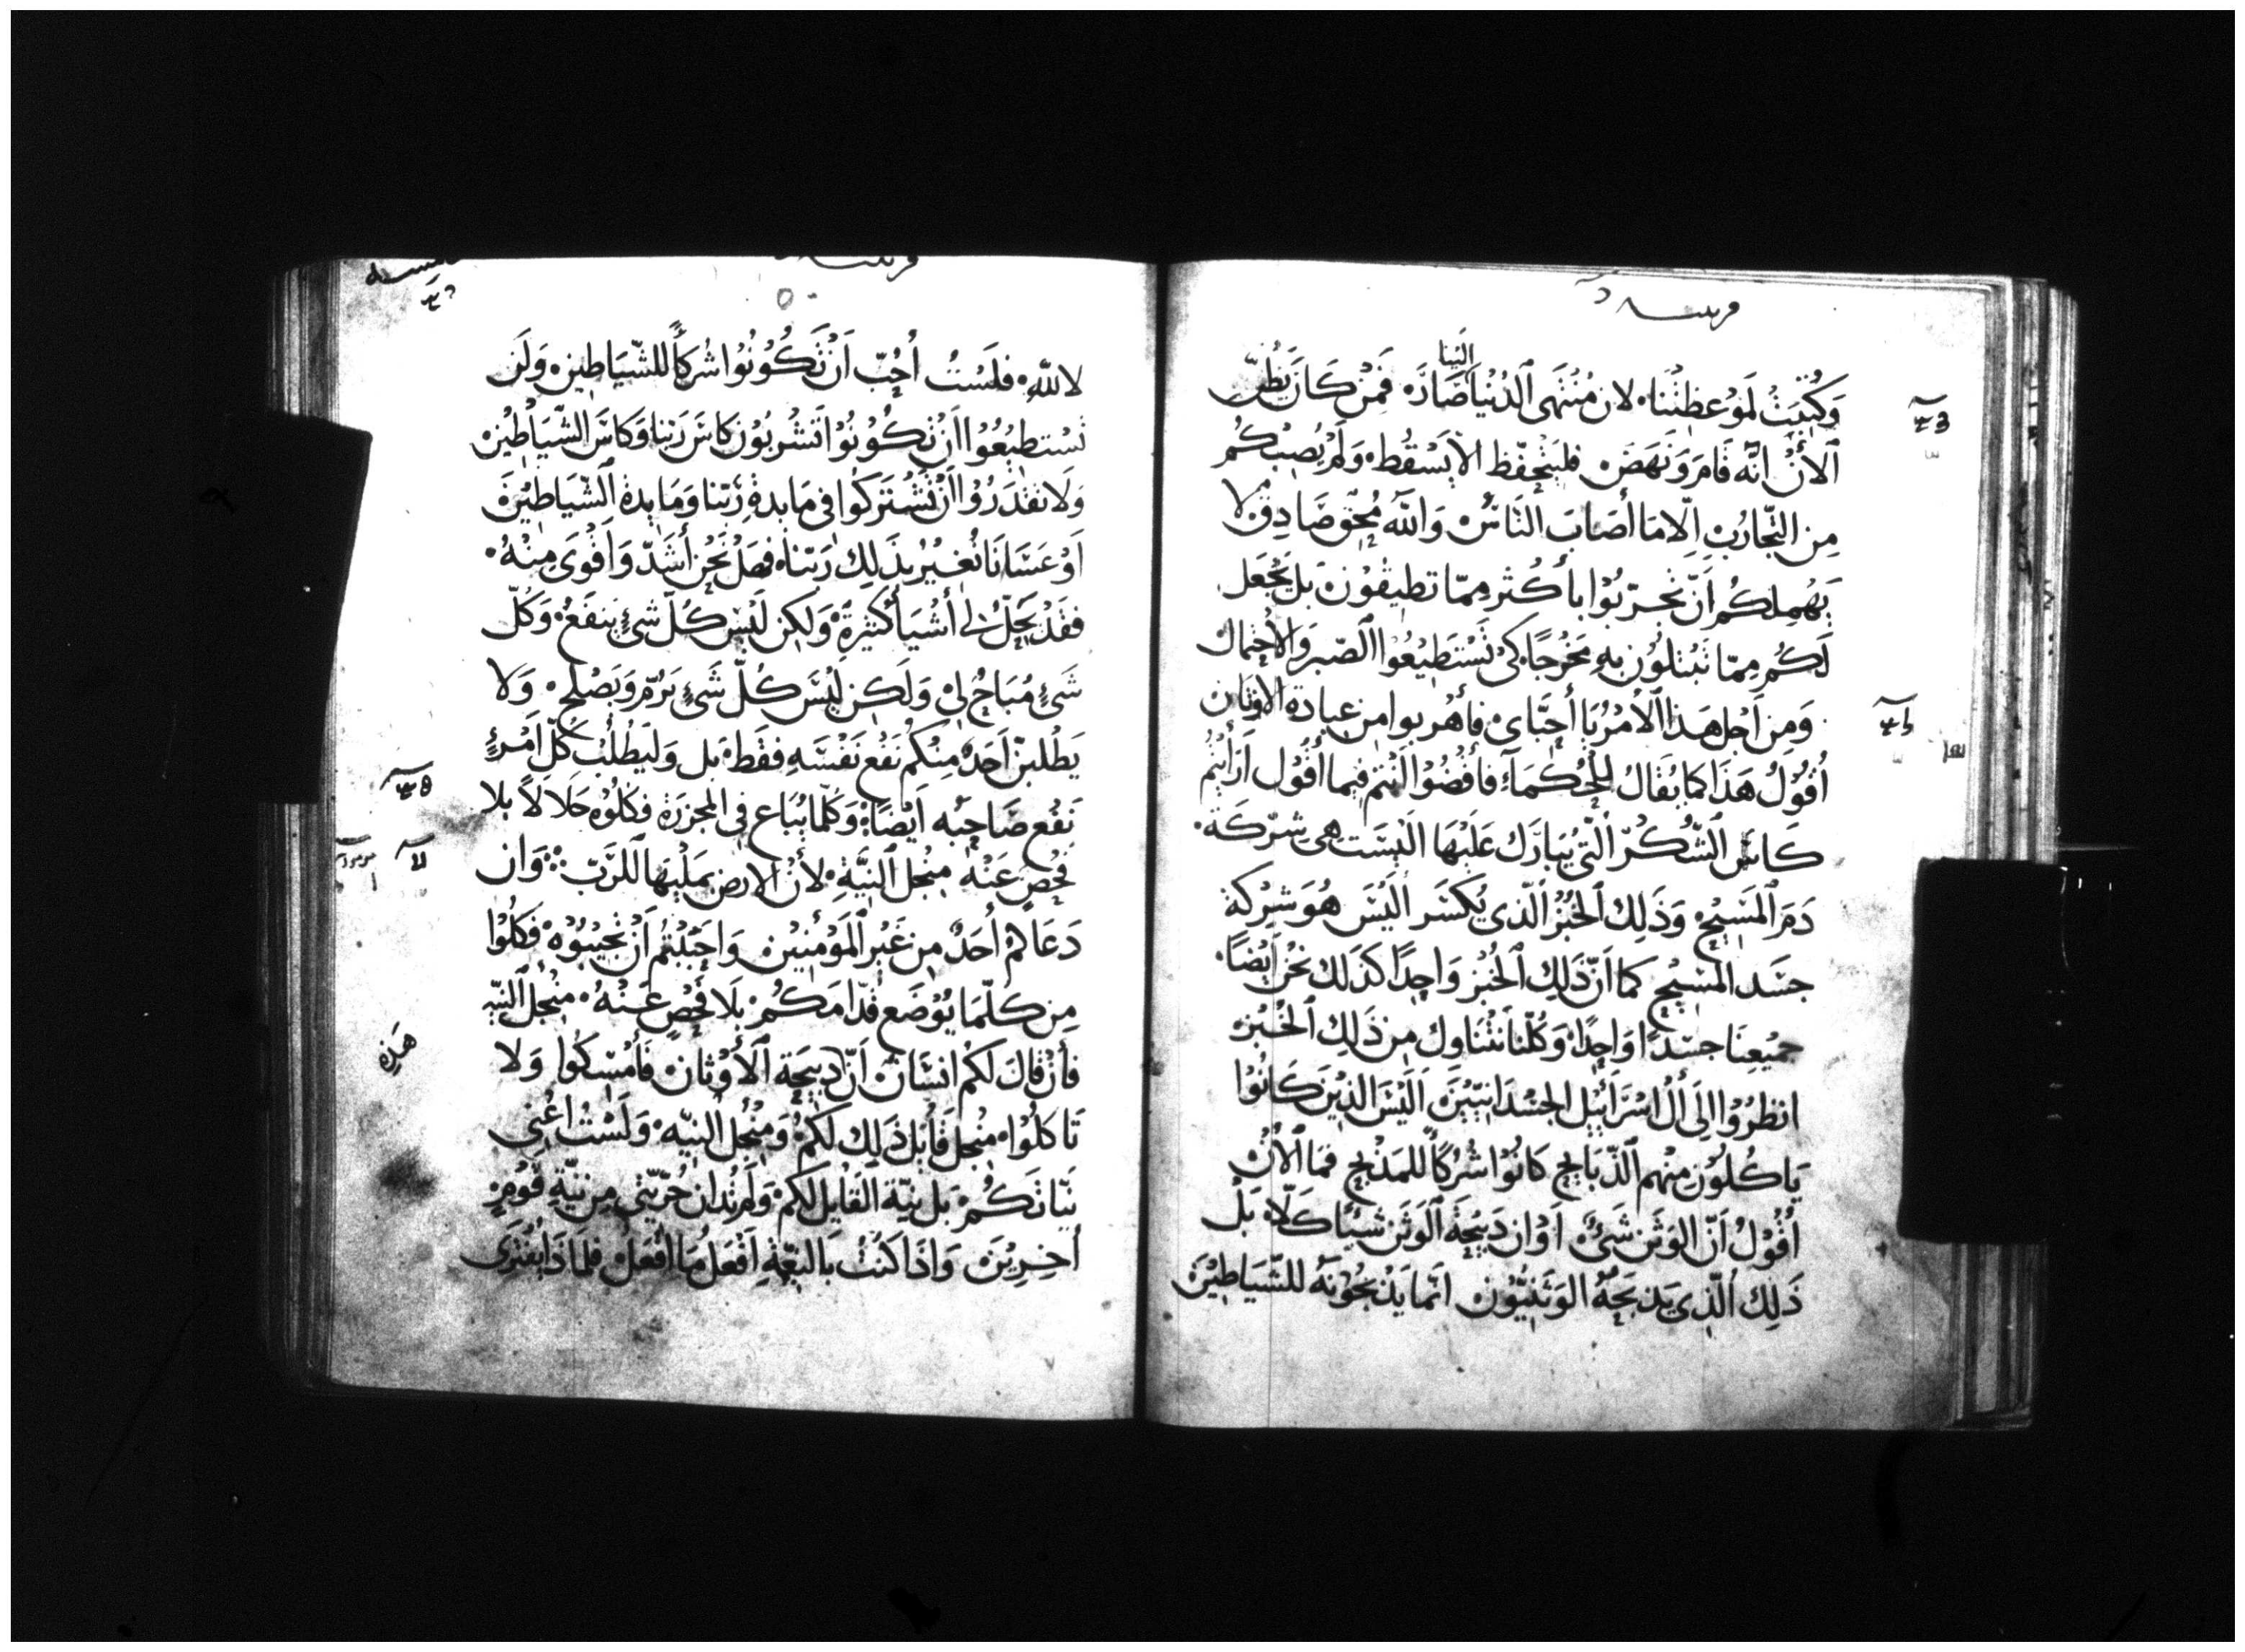 وَكُتِبَتْ لَمَوْعِظَتِنَا. لان مُنْتَهَى الدُّنْيَا الَيْنا صَارَه فَمَنْ كَانَ يَظُنّ
الآنْ انّه قَامَ وَنَهَضَ فليَتحفّظ الّا يَسْقُط. وَلَمْ يُصِبْكُم
مِن التّجارُبِ الّا مَا أصَابَ النَاسْ وَاللّه مُحِقٌ صَادِقٌ لا
يَهْمِلكُم اَنّ تُجرّبُوْا باَكْثر مِمّا تطيقُوْن بَل يَجْعَل
لَكُم مِمّا تُبْتَلوْن بهِ مَخْرجًا كىْ تَسْتَطيْعُوْا الصّبر وَالاحْتمال
وَمِن اَجْل هَذا الأمْر يَا أحِبّاى فأهْربوا مِن عِبادة الاوثان
أقُوْلُ هَذَا كما يُقَالُ للحُكمَآء فأقْضُوْا انْتم فِيما أقُوْل اَرَأيْتُم
كَاسَ الشُّكْر الّتي يُبَارَك عَلَيْهَا الَيْسَت هِى شِرْكَة.
دَمَ المَسِيْح وَذَلِك الخُبْز الّذى يُكسَر الَيْسَ هُوَ شِرْكة
جسَد المسِيْح كما اَنّ ذَلِك الخُبْز وَاحِدًا كذَلك نحْن اَيْضًا.
جَمِيْعِنَا جسَدًا وَاحِدًا وَكُلّنا نَتْنَاوَل مِن ذَلِك الخُبْز
انظرُوْا الَى ال اسْرَائيْل الجسْدَانيّيْنَ الَيْسَ الذِيْنَ كَانُوْا
يَاكُلُوْن مِنْهم الذّبَايح كَانُوْا شُرَكاً للمَذْبح فما الآنْ
أقُوْلُ اَنّ الوَثَن شَىْءْ اَوْ ان دَبِيْحَة الوَثَن شَيْئًا كَلّا بَلْ
ذَلِك الّذِى يَذبَحَهُ الوَثَنيُّوْن انّما يَذْبحُوْنَهُ للشّيَاطِيْنَ
لا للّهِ. فلَسْتُ أحُبّ اَنْ تَكُوْنُوْا شُركأً للشّيَاطِين. وَلَن
تَسْتطيْعُوْا اَنْ تَكُوْنُوْا تَشْربُوْن كَاسَ رَبّنا وَكَاسَ الشّيَاطِيْن
وَلَا تقْدَرُوْا اَنْ تَشْتَركُوا فِى مَايدة رَبّنا وَمَايدة الشّيَاطِيْنَ
اَوْ عَسَانَا نُغيْرُ بذَلِك رَبّنا فهَلْ نَحْن أشَدّ وَاَقْوَى مِنْهُ.
فقَدْ يَحِلُّ لى أشْيَأ كَثِيْرَة وَلكِن لَيْسَ كُلّ شىْءٍ يَنفَعُ. وَكُلّ
شَىْءٍ مُبَاحُ لى. وَلَكِن لَيْسَ كُلّ شَىْءٍ يَرُمّ وَيَصْلح. وَلَا
يَطْلبَنّ اَحَدٌ مِنْكُم نَفْع نَفْسَهِ فقَط بَل وَلْيَطْلُبْ كُلّ اَمْرءٍ
نَفْع صَاحِبُه اَيْضَا. وَكُلّما يُبَاع فِى المجزرَة فكُلُوْه حَلَالاً بلا
فحْصٍ عَنْهُ مِنْجل النيَّةِ. لأنْ الارض بمَلْيِهَا للرَّبّ ⁘ وَان
دَعَاكُمْ أحَدٌ مِن غَيْر المُوْمنيْن وَاحْبَبْتُم اَنْ تُجيْبُوْهُ فكُلُوْا
مِن كُلّمَا يُوْضَع قُدّامَكُم بَلَا فَحْصٍ عَنْهُ. مِنْجل النيّه
فأنْ قَالَ لكُم انسَانْ اَنّ دبيْحَة الأوْثان فَأمْسكُوا وَلا
تَاكلُوْا. مِنْجل قَأيل ذَلِك لكمُ وَمِنْجل النيّه وَلَسْتُ اعْنى
نيّاتكُم بَل نيّة القَايل لكم وَلَم تُدان حُرّيّتى مِن نيّةِ قوْمٍ
أخِرِيْنَ وَاذَا كنْتُ بَالنِعْمَةِ اَفْعَلُ مَا اَفْعَلُ فلمَا ذَا يُفْتَرَى
هَذِه